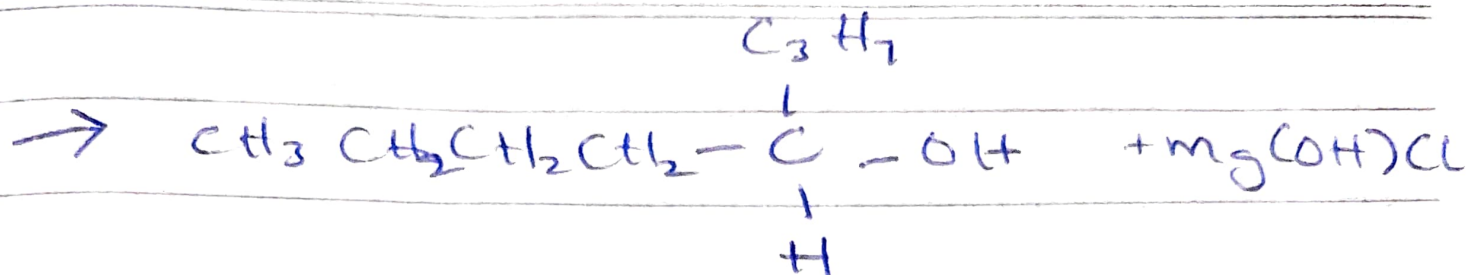 C₃H₇
|
→ CH₃CH₂CH₂CH₂ – C – OH + Mg(OH)Cl
|
H